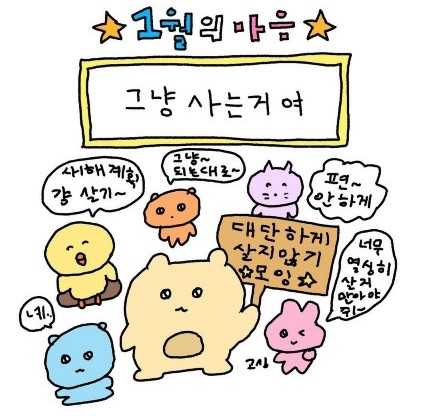 1월의 마음
그냥 사는거여
새해계획
걍 살기~
그냥~
되는대로~
편~
안하게
대단하게
살지않기
☆모임☆
너무
열심히
살지
말아야
쥐~
네.